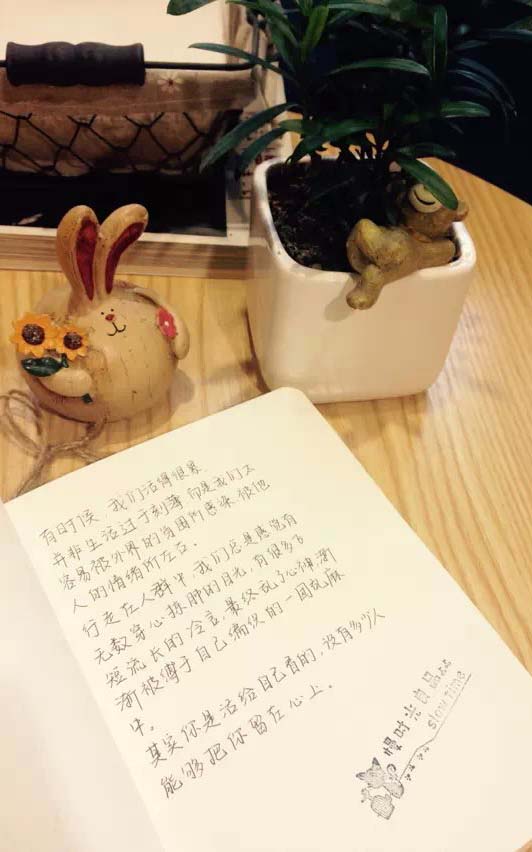 有时候 我们活得很累.
并非生活过于刻薄 而是我们太
容易被外界的氛围所感染 被他
人的情绪所左右.
行走在人群中,我们总是感觉有
无数穿心掠肺的目光,有很多飞
短流长的冷言 最终乱了心神 渐
渐被缚于自己编织的一团乱麻
中.
其实你是活给自己看的,没有多少人
能够把你留在心上.
慢时光良品
slow time